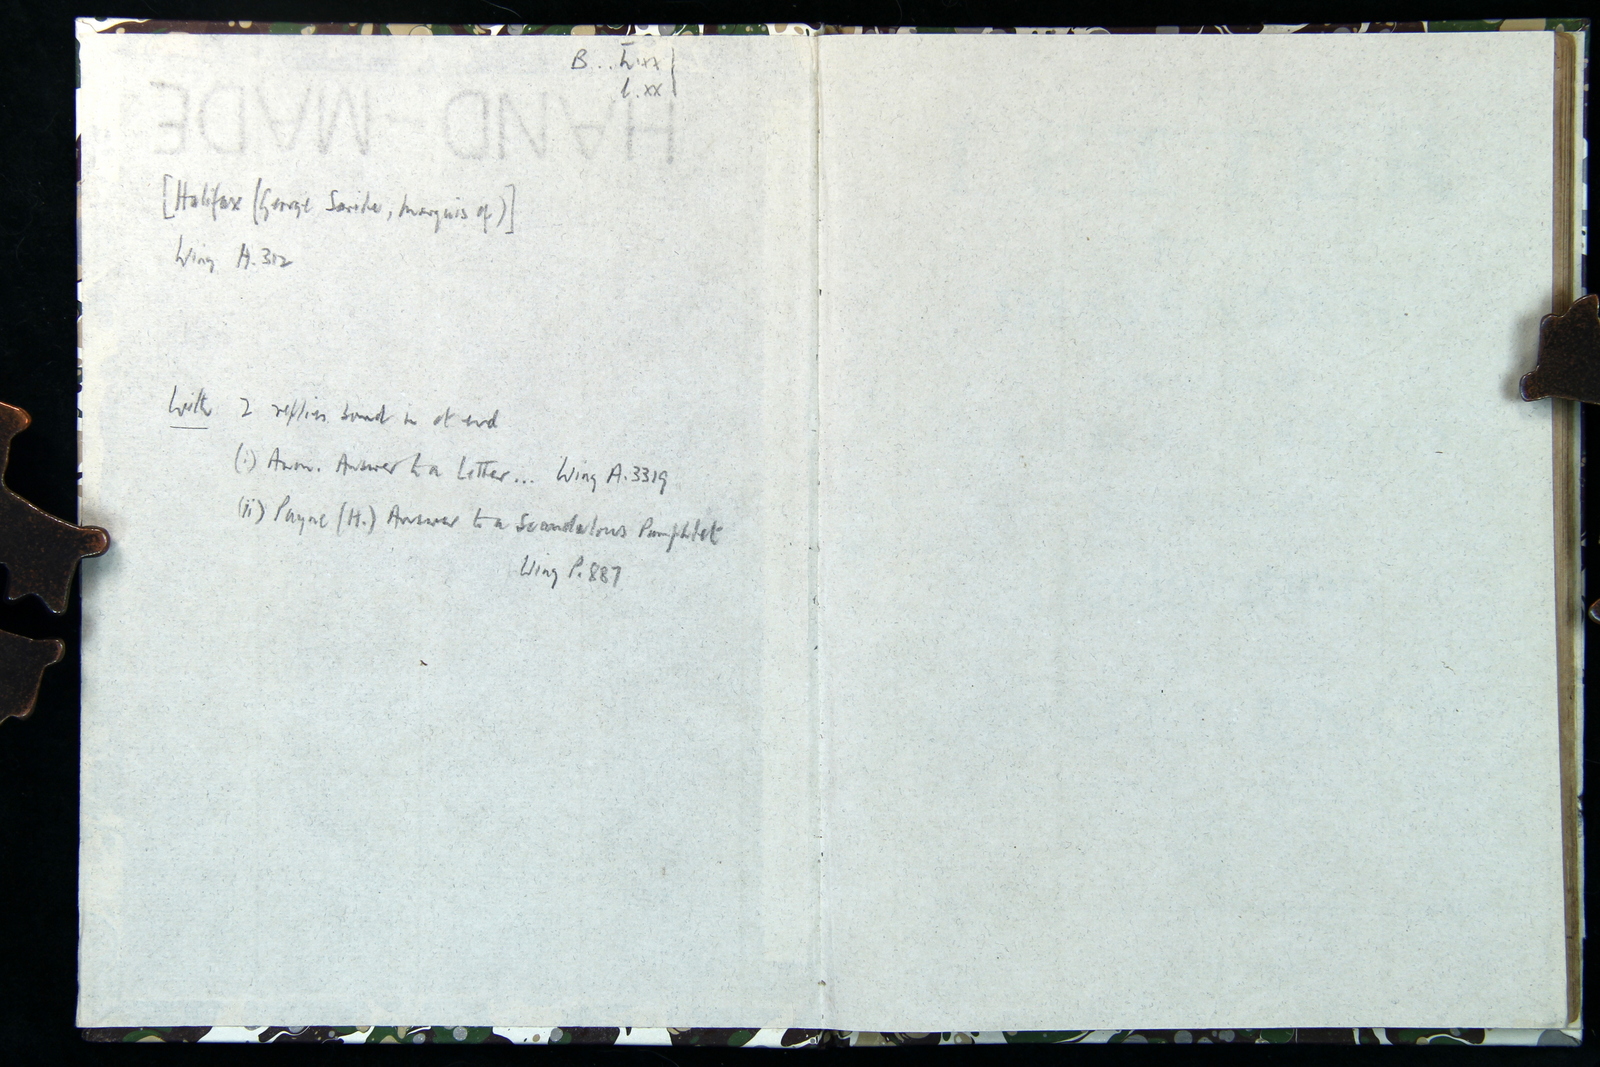 B..L.xx
l.xx
HAND-MADE
[Halifax (George Savile, Marquis of)]
Wing H.312
With 2 replies bound in at end
(i) Anon. Answer to a Letter... Wing A.3319
(ii) Payne (H.) Answer to a Scandalous Pamphlet
Wing P.887